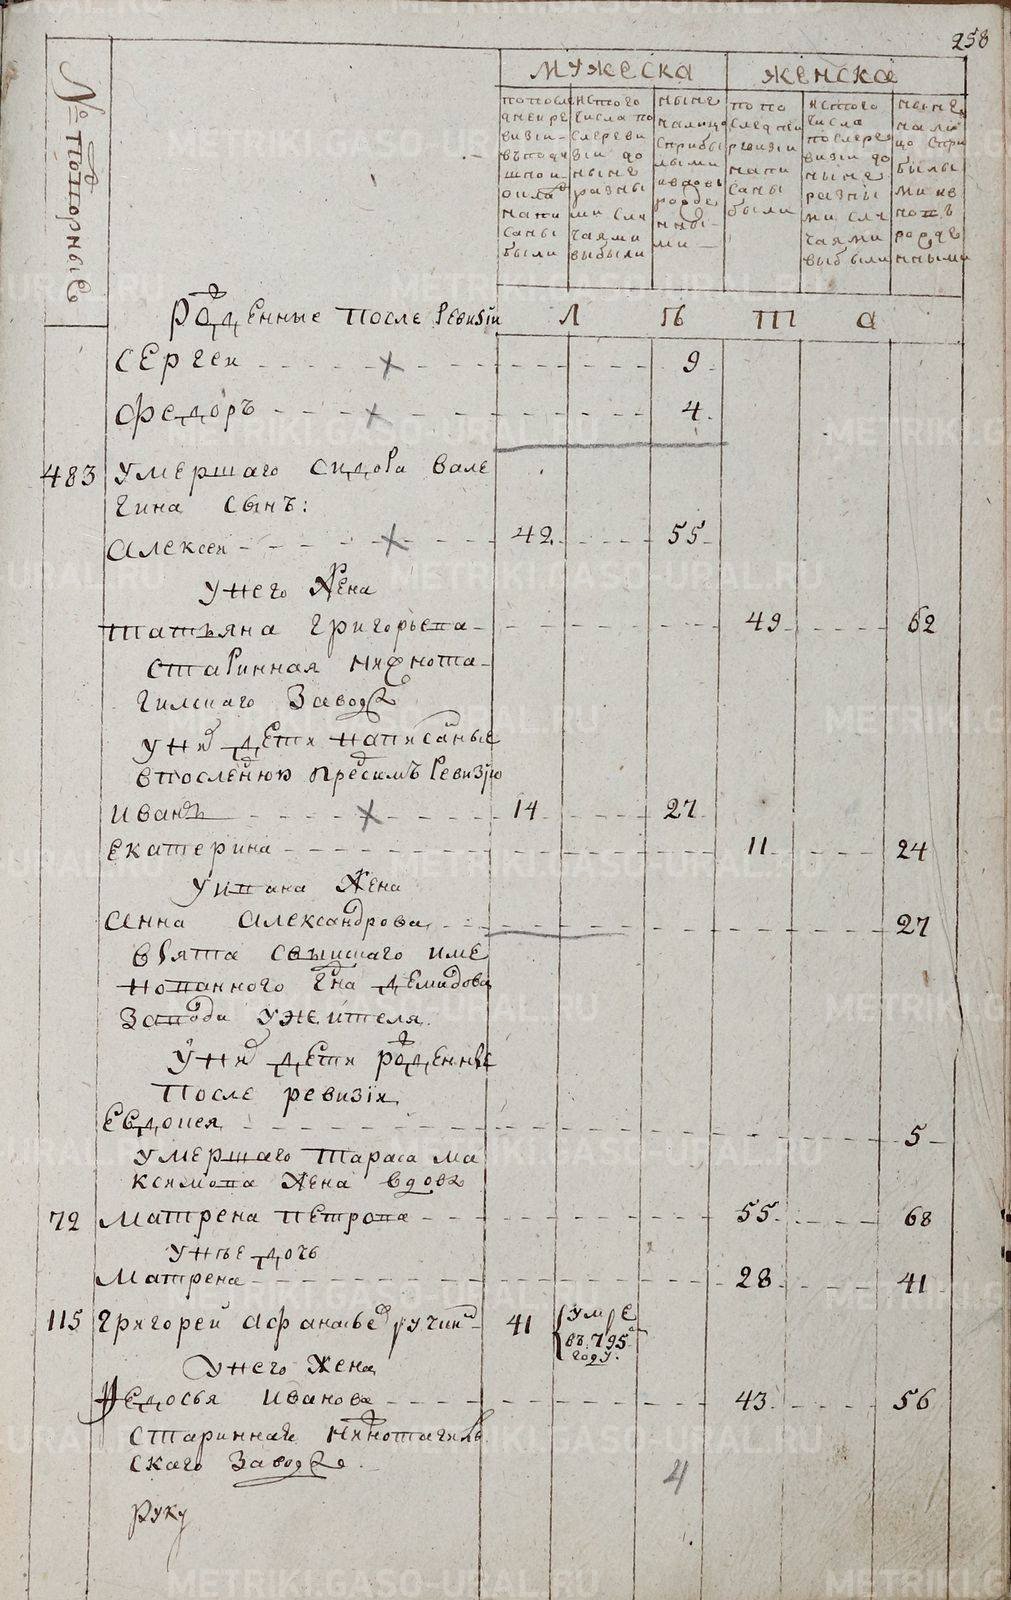 258
№ подворные
мужеска
женска
попосле
днеи ре
визiи
въ поду
шнои
окла
напи
саны
были
ис того
числа по
сле реви
зiи до
ныне
разны
ми слу
чаями
выбыли
ныне
на лицо
с прибы
лыми
и вновь
рожде
нны-
ми
по по
следнеи
ревизiи
напи
саны
были
ис того
числа
после ре
визiи до
ныне
разны
ми слу
чаями
выбыли
ныне
на ли
цо с при
былы
ми и в
новь
рожде
нными
Рожденные после ревизiи
л ѣ т а
Сергеи 9
Федоръ 4
483 умершаго Сидора Вале
гина сынъ:
Алексеи 42 55
у него жена
Татьяна Григорьева 49 62
старинная нижнота
гилскаго завода
у них дети написаные
в последнюю пред симъ ревизiю
Иванъ 14 27
Екатерина 11 24
у Ивана жена
Анна Александрова 27
взята с вышшаго име
нованного гдна Демидова
завода у жителя
у них дети рожденные
после ревизiи
Евдокея 5
умершаго Тараса Ма
ксимова жена вдова
72 Матрена Петрова 55 68
у нъе дочь
Матрена 28 41
115 Григореи Афанасьев ручин 41 умре
въ 795
году.
у него жена
Федосья Иванова 43 56
стариннаи нижнотагиль
скаго завода
4
руку